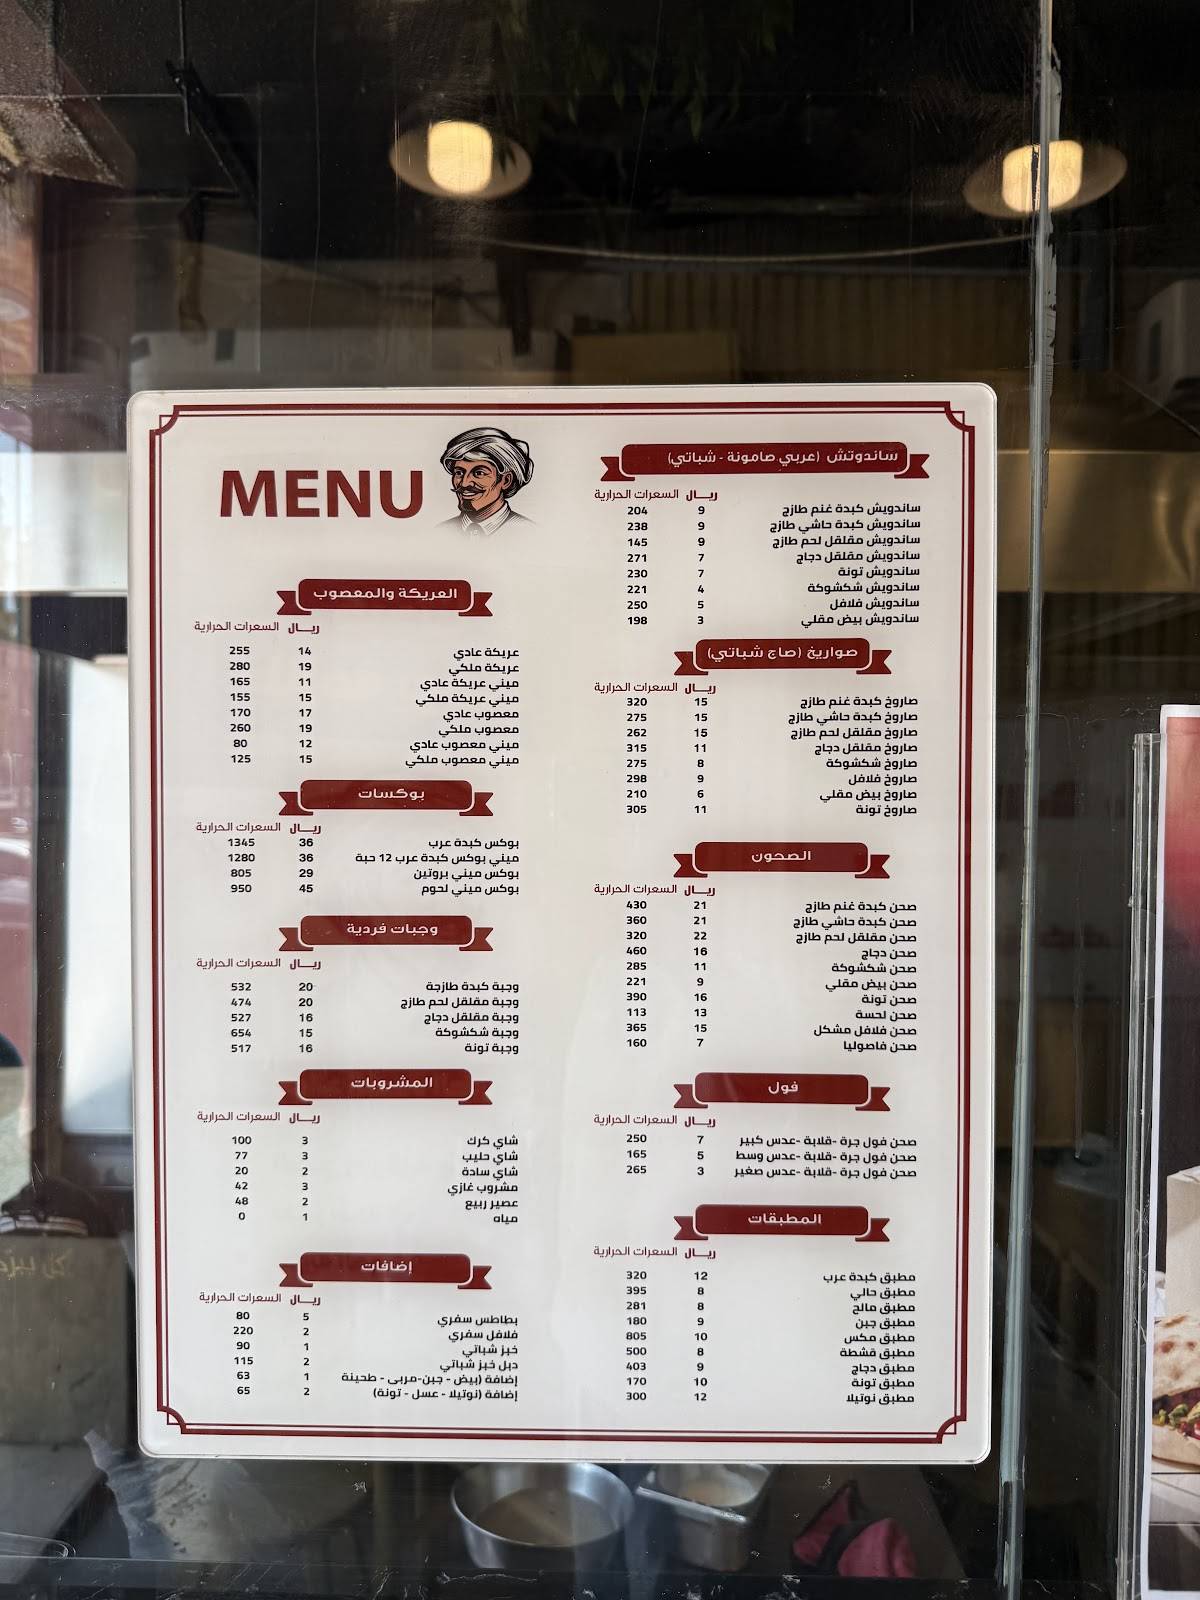 MENU
ساندوتش (عربي صامونة - شباتي)
ريـــال السعرات الحرارية
ساندويش كبدة غنم طازج 9 204
ساندويش كبدة حاشي طازج 9 238
ساندويش مقلقل لحم طازج 9 145
ساندويش مقلقل دجاج 7 271
ساندويش تونة 7 230
ساندويش شكشوكة 4 221
ساندويش فلافل 5 250
ساندويش بيض مقلي 3 198
صواريخ (صاج شباتي)
ريـــال السعرات الحرارية
صاروخ كبدة غنم طازج 15 320
صاروخ كبدة حاشي طازج 15 275
صاروخ مقلقل لحم طازج 15 262
صاروخ مقلقل دجاج 11 315
صاروخ شكشوكة 8 275
صاروخ فلافل 9 298
صاروخ بيض مقلي 6 210
صاروخ تونة 11 305
الصحون
ريـــال السعرات الحرارية
صحن كبدة غنم طازج 21 430
صحن كبدة حاشي طازج 21 360
صحن مقلقل لحم طازج 22 320
صحن دجاج 16 460
صحن شكشوكة 11 285
صحن بيض مقلي 9 221
صحن تونة 16 390
صحن لحسة 13 113
صحن فلافل مشكل 15 365
صحن فاصوليا 7 160
فول
ريـــال السعرات الحرارية
صحن فول جرة -قلابة -عدس كبير 7 250
صحن فول جرة -قلابة -عدس وسط 5 165
صحن فول جرة -قلابة -عدس صغير 3 265
المطبقات
ريـــال السعرات الحرارية
مطبق كبدة عرب 12 320
مطبق حالي 8 395
مطبق مالح 8 281
مطبق جبن 9 180
مطبق مكس 10 805
مطبق قشطة 8 500
مطبق دجاج 9 403
مطبق تونة 10 170
مطبق نوتيلا 12 300
العريكة والمعصوب
ريـــال السعرات الحرارية
عريكة عادي 14 255
عريكة ملكي 19 280
ميني عريكة عادي 11 165
ميني عريكة ملكي 15 155
معصوب عادي 17 170
معصوب ملكي 19 260
ميني معصوب عادي 12 80
ميني معصوب ملكي 15 125
بوكسات
ريـــال السعرات الحرارية
بوكس كبدة عرب 36 1345
ميني بوكس كبدة عرب 12 حبة 36 1280
بوكس ميني بروتين 29 805
بوكس ميني لحوم 45 950
وجبات فردية
ريـــال السعرات الحرارية
وجبة كبدة طازجة 20 532
وجبة مقلقل لحم طازج 20 474
وجبة مقلقل دجاج 16 527
وجبة شكشوكة 15 654
وجبة تونة 16 517
المشروبات
ريـــال السعرات الحرارية
شاي كرك 3 100
شاي حليب 3 77
شاي سادة 2 20
مشروب غازي 3 42
عصير ربيع 2 48
مياه 1 0
إضافات
ريـــال السعرات الحرارية
بطاطس سفري 5 80
فلافل سفري 2 220
خبز شباتي 1 90
دبل خبز شباتي 2 115
إضافة (بيض - جبن-مربى - طحينة 1 63
إضافة (نوتيلا - عسل - تونة) 2 65